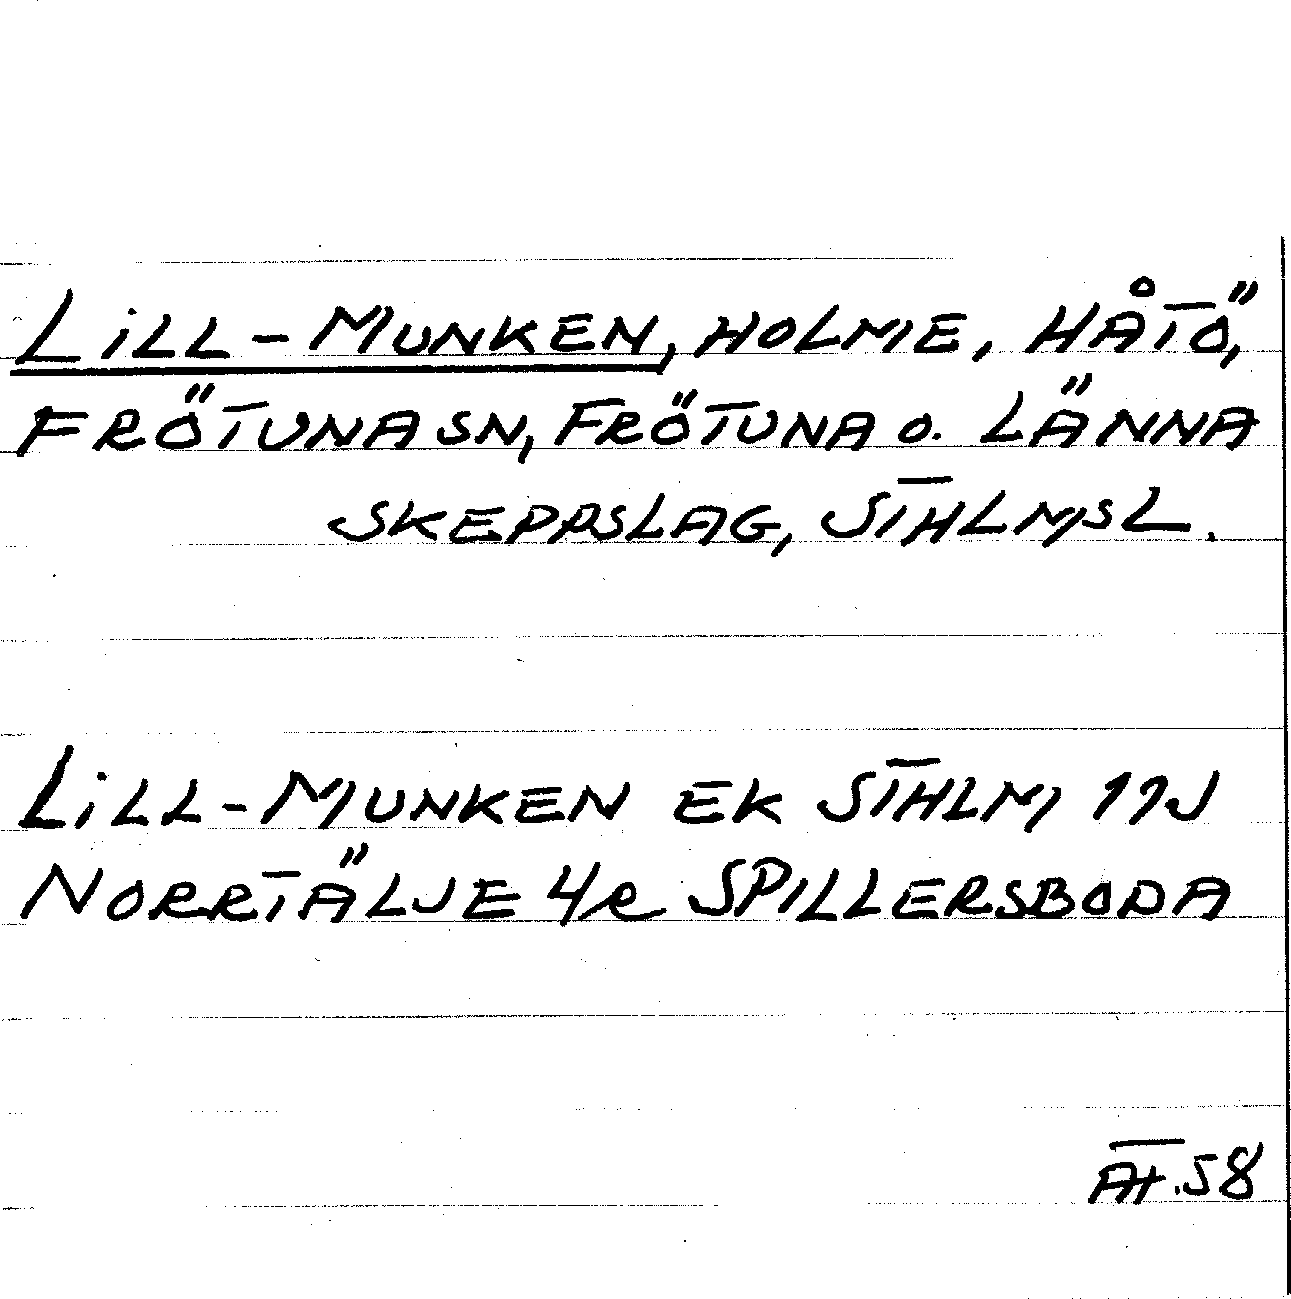 LILL-MUNKEN, HOLME, HÅTÖ,
FRÖTUNA SN, FRÖTUNA O. LÄNNA
SKEPPSLAG, STHLMSL.
LILL-MUNKEN EK STHLM 11J
NORRTÄLJE 4R SPILLERSBODA
AT.58